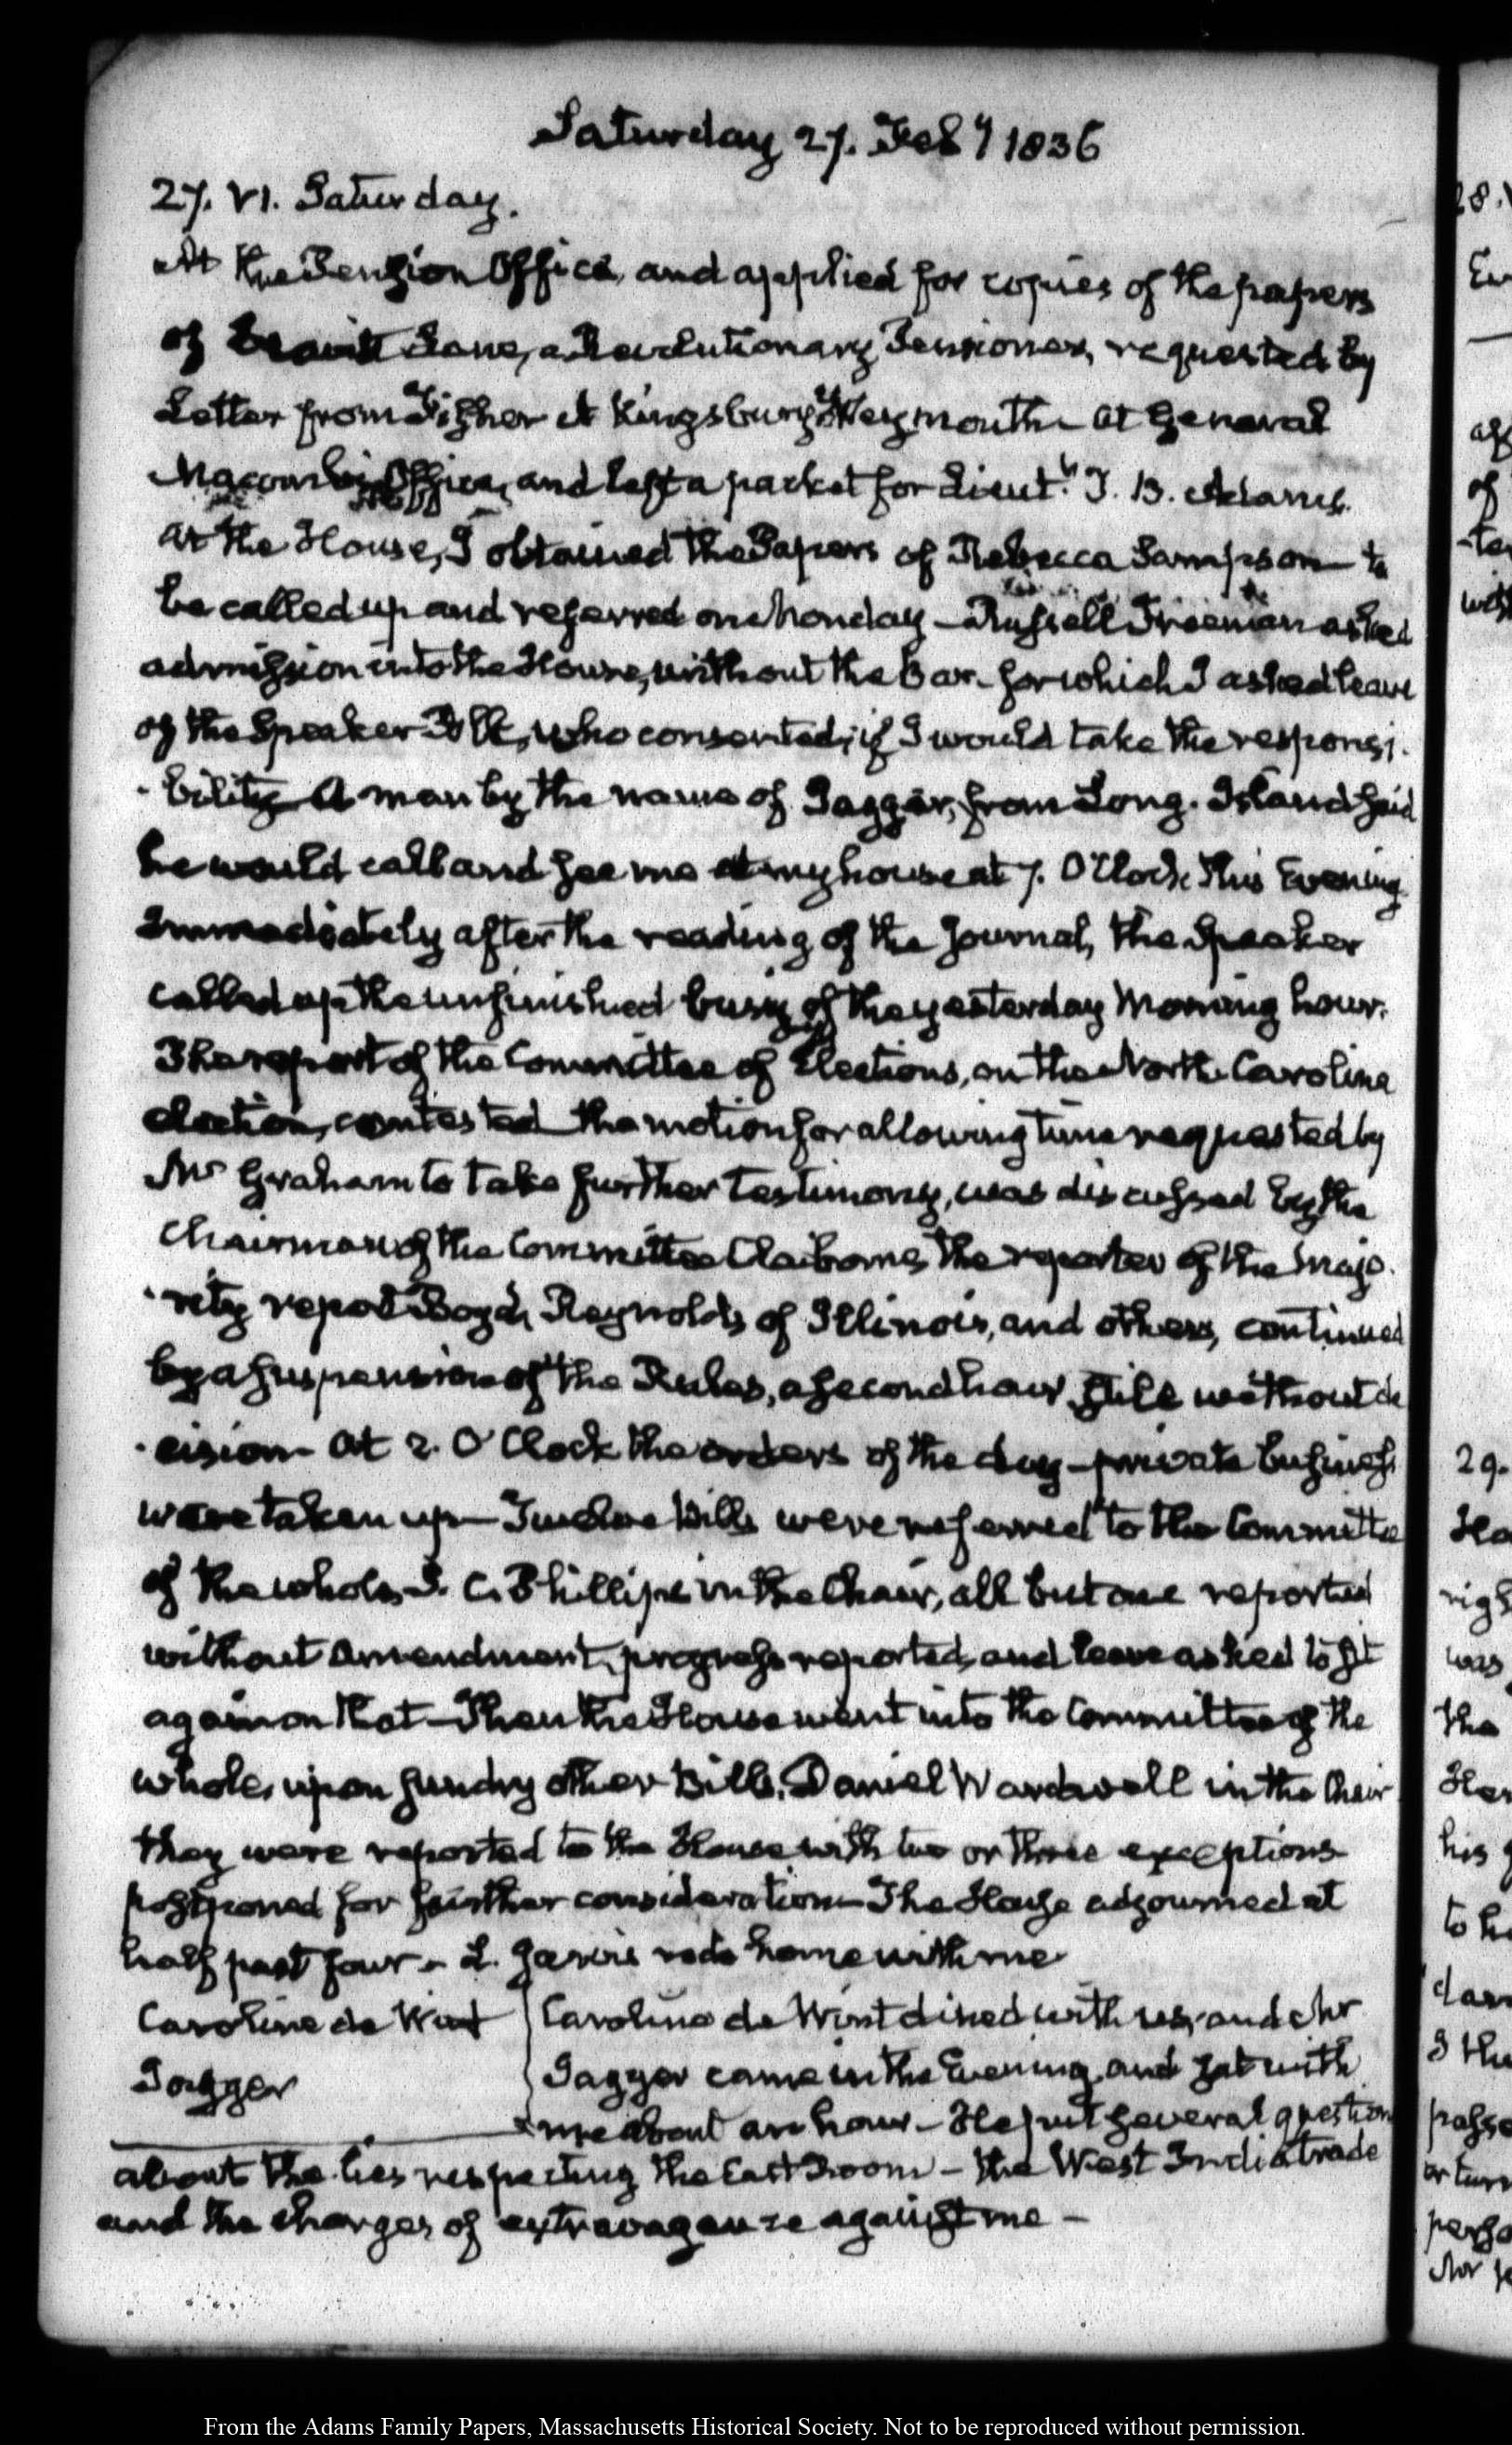 Saturday 27. Feby 1836
27. VI. Saturday.
At the Pension Office, and applied for copies of the papers
of Lane, a Revolutionary Pensioner, requested by
Letter from Fisher A Kingsbury of Weymouth - At General
Macomb's Office, and left a packet for Lieutt. J. B. Adams.
At the House, I obtained the Papers of Rebecca Sampson to
be called up and referred on Monday - Russell Freeman asked
admission into the House, without the Bar for which I asked leave
of the Speaker Polk, who consented, if I would take the responsi-
-bility A man by the name of Jaggar, from Long-Island said
he would call and see me at my house at 7. O'Clock this Evening
Immediately after the reading of the Journal, the Speaker
called up the unfinished busig of the yesterday Morning hour.
The report of the Committee of Elections, on the North Carolina
election, contested the motion for allowing time requested by
Mr Graham to take further testimony, was discussed by the
Chairman of the Committee Claiborne, the reporter of the Majo-
-rity report Boyd, Reynolds of Illinois, and others, continued
by a suspension of the Rules, a second hour still without de
-cision - At 2. O'Clock the orders of the day - private business
were taken up - Twelve bills were referred to the Committee
of the whole, S. C. Phillips in the Chair, all but one reported
without amendment, progress reported, and leave asked to sit
again on that - Then the House went into the Committee of the
whole, upon sundry other Bills, Daniel Wardwell in the Chair
they were reported to the House with two or three exceptions
postponed for further consideration - The House adjourned at
half past four - L. Jarvis rode home with me
Caroline de Wint Caroline de Wint dined with us, and Mr
Jagger Jagger came in the Evening, and sat with
me about an hour - He put several question
about the lies respecting the East Room - the West India trade
and the charges of extravagance against me -
From the Adams Family Papers, Massachusetts Historical Society. Not to be reproduced without permission.